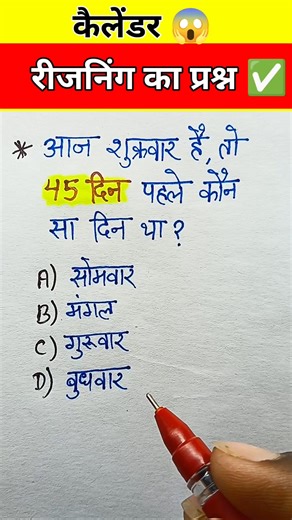 कैलेंडर 😱
रीजनिंग का प्रश्न ✅
* आज शुक्रवार है, तो
45 दिन पहले कौन
सा दिन था?
A) सोमवार
B) मंगल
C) गुरूवार
D) बुधवार